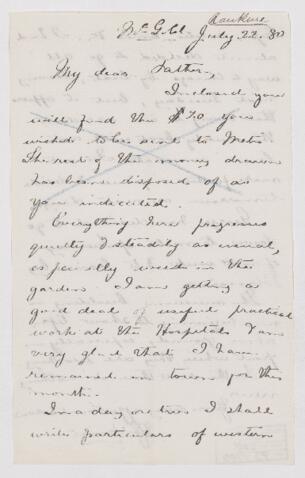 Rankine
July 22. 80
My dear Father,
Inclosed you
will find the $20 you
wished to be sent to Metis
The rest of the money drawn
has been disposed of as
you indicated.
Everything here progresses
quietly & steadily as usual,
especially weeds in the
garden. I am getting a
good deal of useful practical
work at the Hospital & am
very glad that I have
remained in town for this
month.
In a day or two I shall
write particulars of western